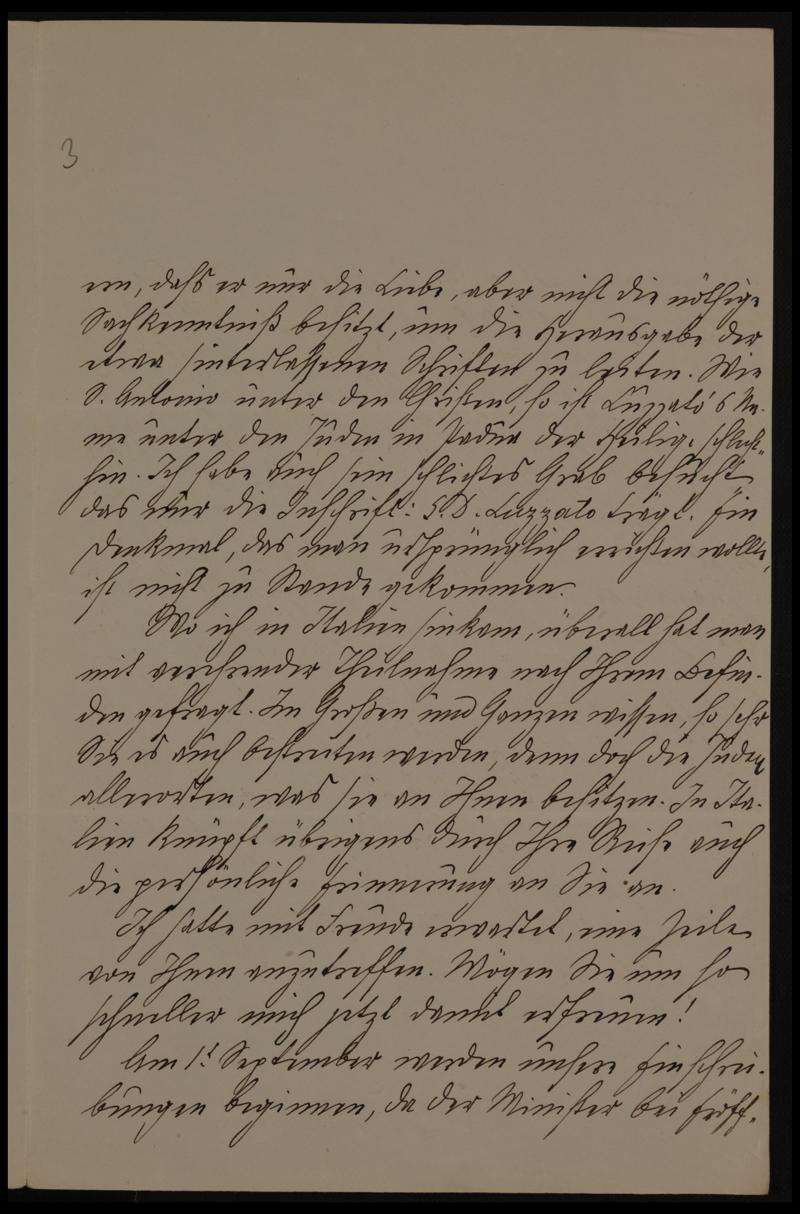 3
ern, dass er nur die Liebe, aber nicht die nöthige
Sachkenntniß besitzt, um die Herausgabe der
etwa hinterlassenen Schriften zu leiten. Wie
S. Antonio unter den Christen, so ist Luzzato's Na-
me unter den Juden in Padua der Heilige schlecht-
hin. Ich habe auch sein schlichtes Grab besucht,
das nur die Inschrift: S. D. Luzzato trägt. Ein
Denkmal, das man ursprünglich errichten wollte,
ist nicht zu Stande gekommen.
Wo ich in Italien hinkam, überall hat man
mit verehrender Theilnahme nach Ihrem Befin-
den gefragt. Im Großen und Ganzen wissen, so sehr
Sie es auch bestreiten werden, denn doch die Juden
allerorten, was sie an Ihnen besitzen. In Ita-
lien knüpft übrigens durch Ihre Reise auch
die persönliche Erinnerung an Sie an.
Ich hatte mit Freude erwartet, eine Zeile
von Ihnen anzutreffen. Mögen Sie um so
schneller mich jetzt damit erfreuen!
Am 1t September werden unsere Einschrei-
bungen beginnen, da der Minister bei Eröff-